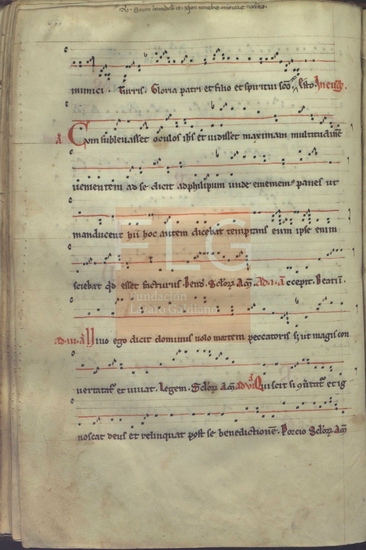 inimici. Turris. Gloria patri et filio et spiritui sco. Isto. In euḡ
a Cum subleuasset oculos ihs et uidisset maximam multitudinē
uenientem ad se dicit ad philipum unde ememem panes ut
manducent hii hoc autem dicebat temptans eum ipse enim
sciebat qd esset facturus. Bened. Sclorꝫ Am̄. ad .i. a ccepit. Beatiī.
ad .iii. a Viuo ego dicit dominus nolo mortem peccatoris sꝫ ut magis con
uertatur et uiuat. Legem. Sclorꝫ Am̄ ad vi. a Qui scit si cōuertatur et ig
noscat deus et relinquat post se benedictionē. Porcio Sclorꝫ Am̄
FLG
Fundación
Lázaro Galdiano